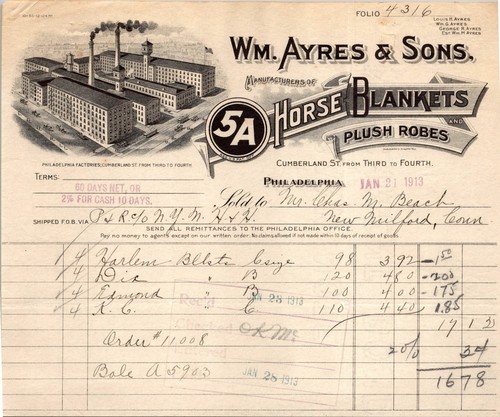 FOLIO 4316
LOUIS H. AYRES
WM. G. AYRES
GEORGE H. AYRES
EST. WM. M. AYRES
WM. AYRES & SONS,
MANUFACTURERS OF
5A HORSE BLANKETS
AND
PLUSH ROBES
CUMBERLAND ST. FROM THIRD TO FOURTH.
PHILADELPHIA FACTORIES, CUMBERLAND ST. FROM THIRD TO FOURTH.
TERMS:
60 DAYS NET, OR
2% FOR CASH 10 DAYS.
PHILADELPHIA JAN 21 1913
Sold to Mr. Chas. M. Beach
SHIPPED F.O.B. VIA P & R c/o N.Y. N. H & H. New Milford, Conn
SEND ALL REMITTANCES TO THE PHILADELPHIA OFFICE.
Pay no money to agents except on our written order. No claims allowed if not made within 10 days of receipt of goods.
4 Harlem Bllsts C size 98 392 - 150
4 Dix " B 120 480 - 200
4 Edmond " B 100 400 - 175
4 K. C. " C 110 440 1.85
Rec'd JAN 28 1913
1712
Order #11008 Checked OK Mc 2% 34
1678
Bale A 5903 JAN 28 1913